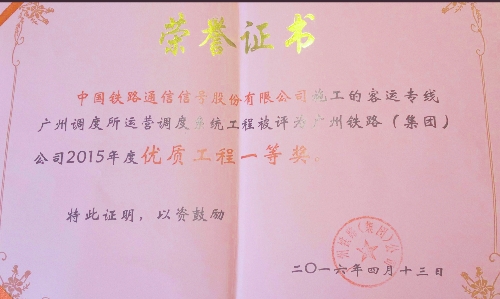 荣誉证书
中国铁路通信信号股份有限公司施工的客运专线
广州调度所运营调度系统工程被评为广州铁路（集团）
公司2015年度优质工程一等奖。
特此证明，以资鼓励
二〇一六年四月十三日